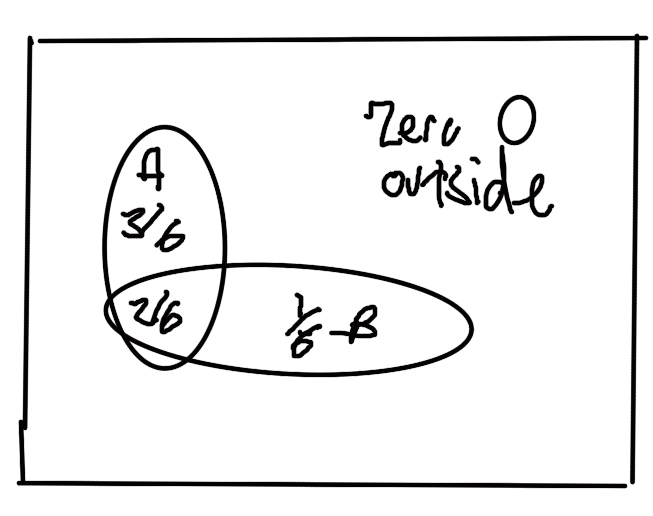 Zero 0
outside
A
3/6
2/6
1/6 - B